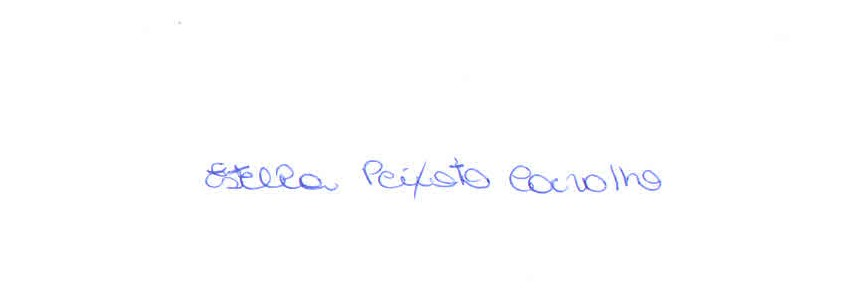 Estella Peixoto Carvalho